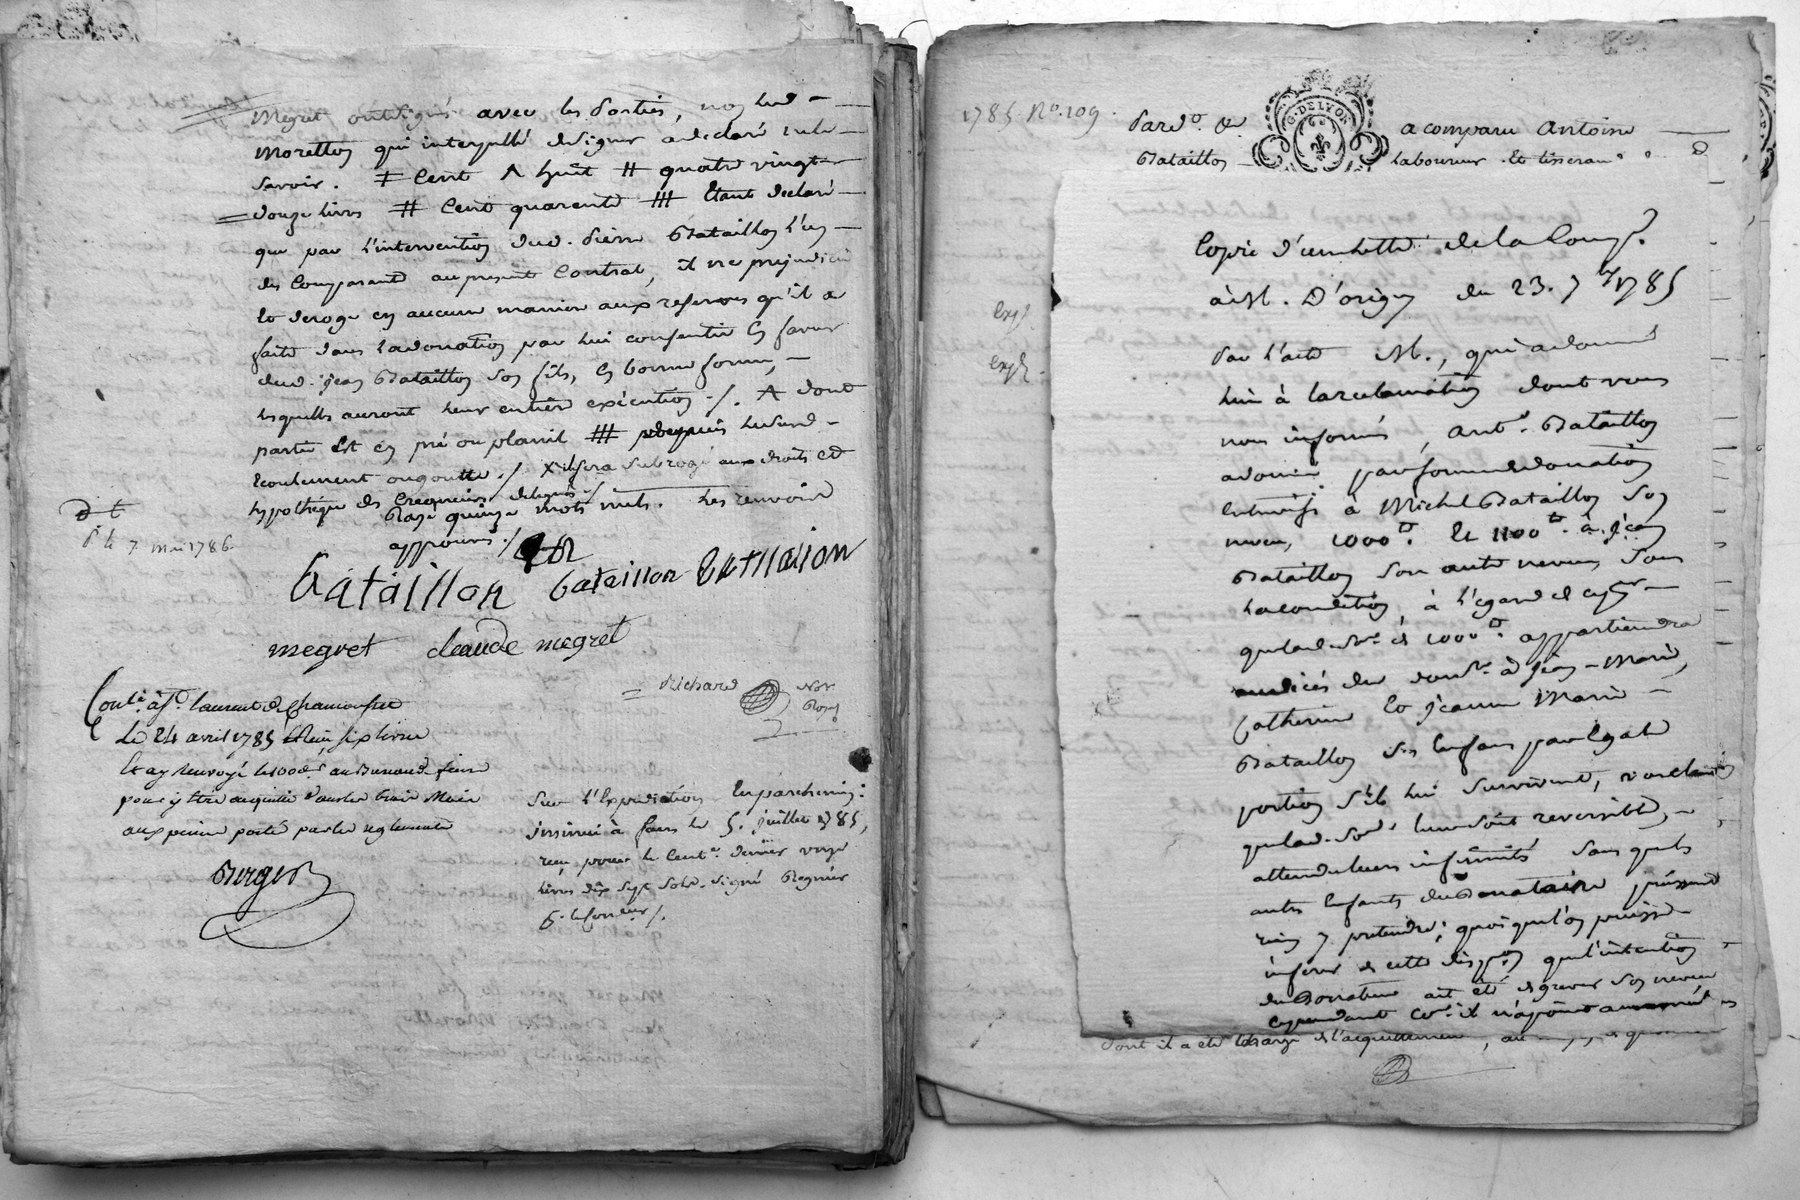 Megret soussignés avec les parties, non led.
Morellon qui interpellé de signer a declaré ne le
savoir. ‡ cent A huit # quatre vingt
douze livres # cent quarente ### Etant declaré
que par l'intervention dud. Pierre Bataillon l'un
des comparants au present Contrat, il ne prejudicie
et deroge en aucune maniere aux reserves qu'il a
faite dans la donation par lui consentie en faveur
dud. jean Bataillon son fils, en bonne forme,
lesquelles auront leur entiere exécution ./. A dont
partie est en pré ou planil ###
Ecoulement ou goutte ./. X il sera subrogé aux droits et
hypotheque des Creanciers delegués ./.
Rayé quinze mots nuls. Les renvois
approuvés ./.
D t
d. le 7 mai 1786.
bataillon bataillon bataillon
megret claude megret
Richard Not. Royal
Contlé à St. Laurent de Chamousset
Le 24 avril 1785 Reçu six livres
Et ay renvoyé le 100e dr au Bureau de feurs
pour y être acquitté dans les trois Mois
aux peines porté par les reglements
Berger
Sur l'Expedition En parchemin:
insinué à feurs le 5. juillet 1785,
reçu pour le Cent.e denier vingt
livres dix sept sols. signé Regnier
1785 No. 109.
Expé.
Expé.
Pard.t &c.
G. DE LYON
a comparu Antoine
Bataillon
Laboureur et tisserand
Copie d'une Lettre de la Comp.e
à M. D'origny du 23. 7bre 1785
Par l'acte M., qui a donné
lieu à la reclamation dont vous
nous informés, Ant.e Bataillon
a donné par forme de donation
Entrevifs à Michel Bataillon son
neveu, 1000tt. Et 1100tt. à jean
Bataillon son autre neveu, sous
la condition, à l'egard de
que lad. so.e de 1000tt. appartiendra
au décès du don.re à Jean-Marie,
Catherine Et jeanne Marie
Bataillon ses Enfans par Egale
portion s'ils lui survivent, voulant
que lad. som.e leur soit reversible,
attendu leurs infirmités sans que les
autres Enfants du Donataire puissent
rien y pretendre; quoique l'on puisse
inferer de cette dispon que l'intention
du Donateur ait été de grever son neveu
cependant co.e il n'a point
dont il a été chargé de l'acquittement,